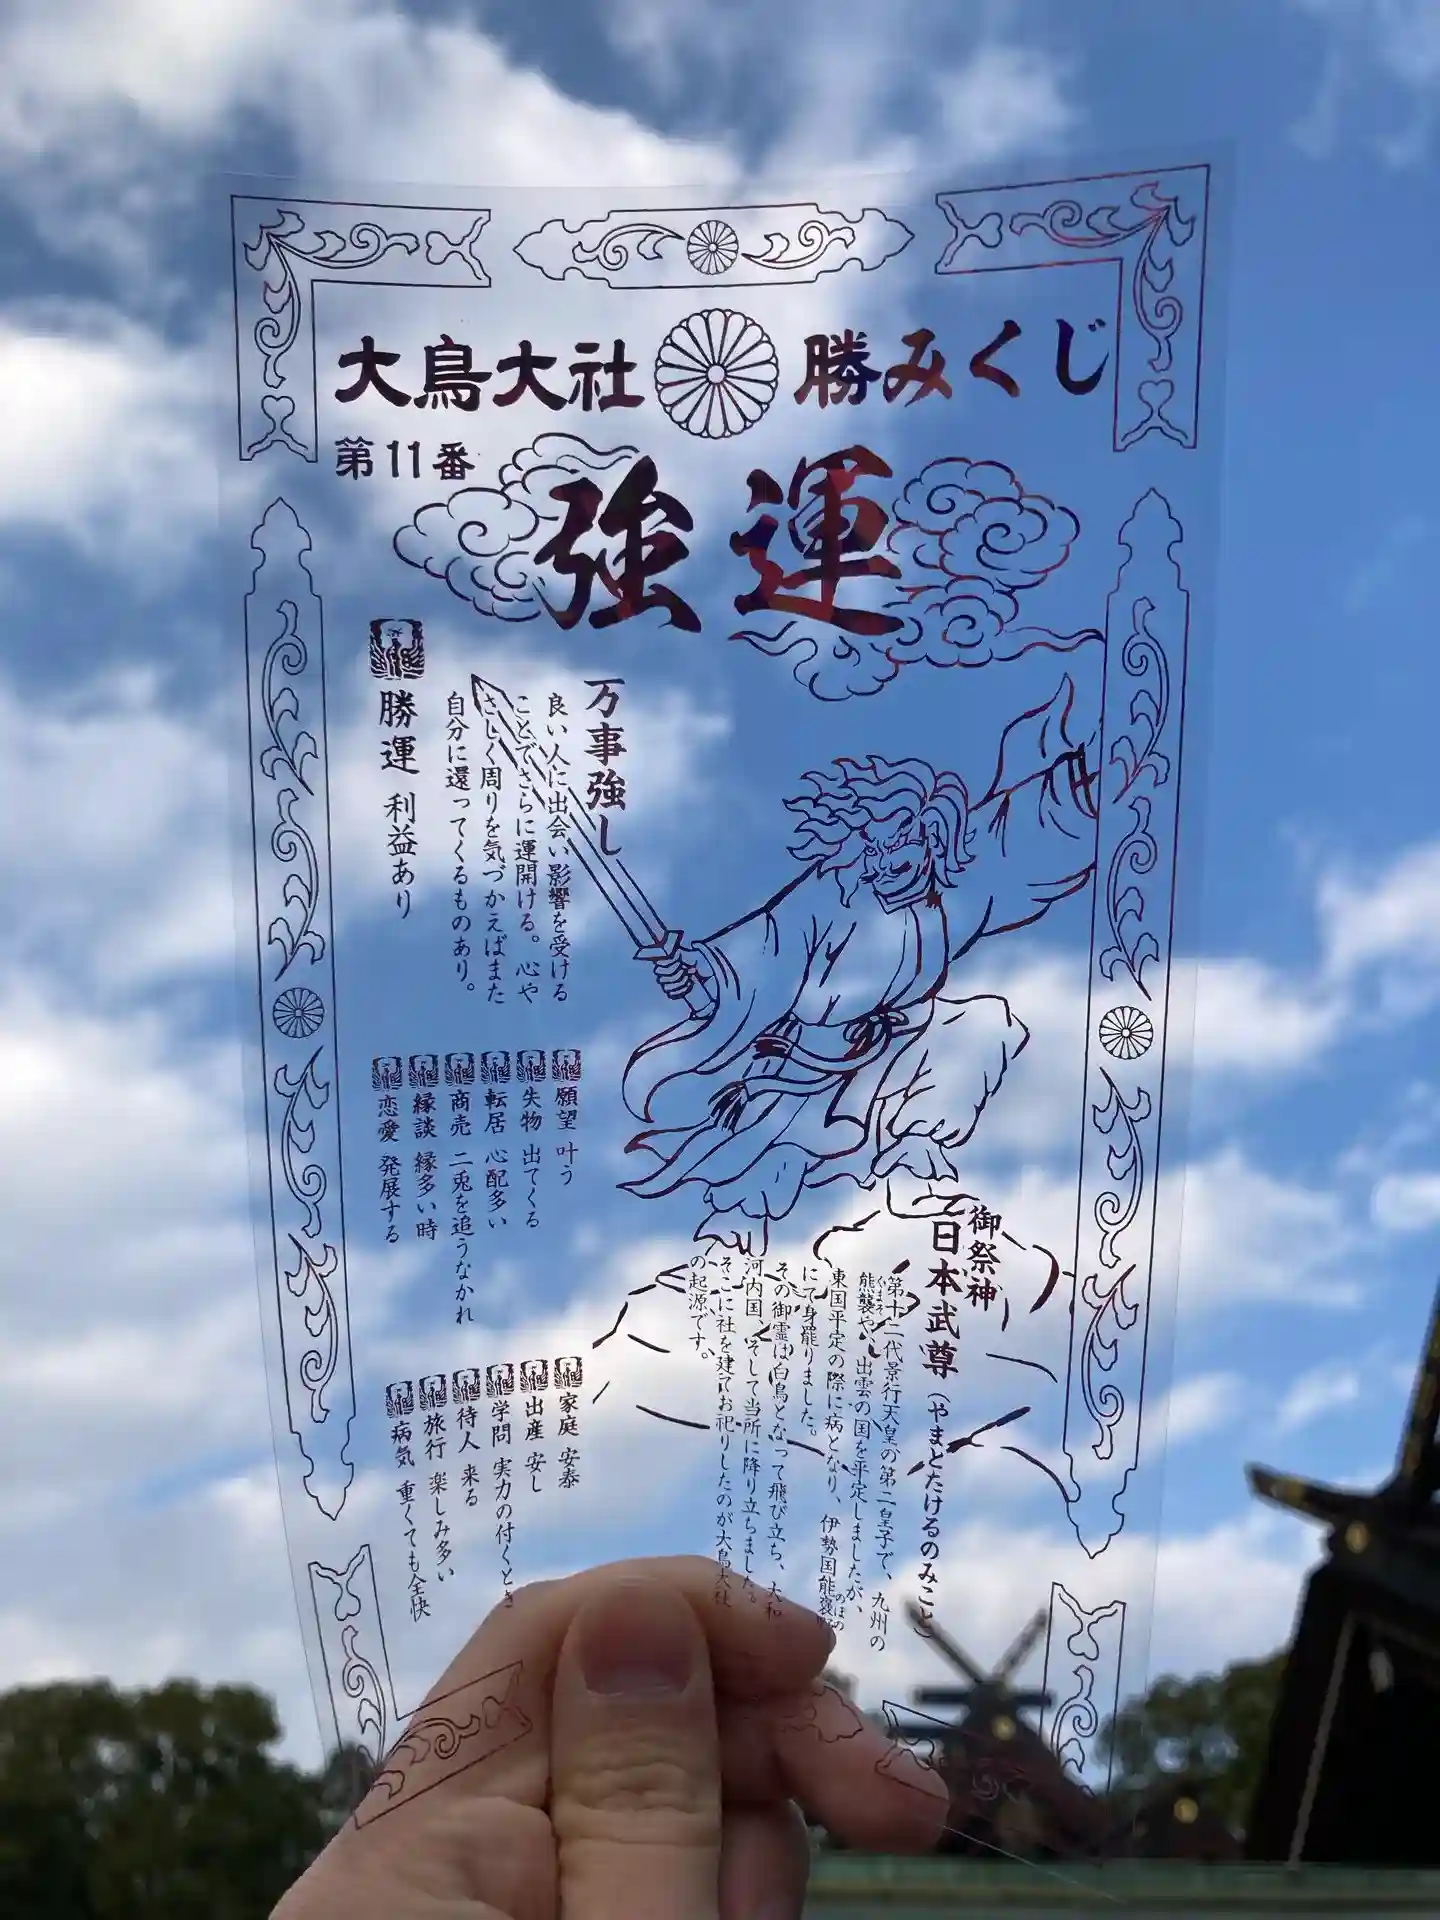 大鳥大社 勝みくじ
第11番
強運
万事強し
良い人に出会い影響を受ける
ことでさらに運開ける。心や
さしく周りを気づかえばまた
自分に還ってくるものあり。
勝運 利益あり
願望 叶う
失物 出てくる
転居 心配多い
商売 二兎を追うなかれ
縁談 縁多い時
恋愛 発展する
家庭 安泰
出産 安し
学問 実力の付くとき
待人 来る
旅行 楽しみ多い
病気 重くても全快
御祭神
日本武尊(やまとたけるのみこと)
第十二代景行天皇の第二皇子で、九州の
熊襲や、出雲の国を平定しましたが、
くまそ
東国平定の際に病となり、伊勢国能褒野
のぼの
にて身罷りました。
その御霊は白鳥となって飛び立ち、大和
河内国、そして当所に降り立ちました。
そこに社を建てお祀りしたのが大鳥大社
の起源です。